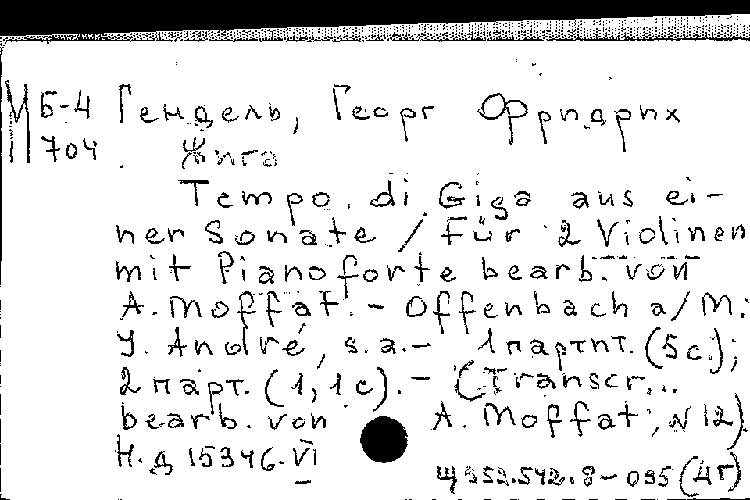 М Б-4 Гендель, Георг Фридрих
П 704 Жига
Tempo di Giga aus ei-
ner Sonate / Für 2 Violinen
mit Pianoforte bearb. von
A. Moffat. - Offenbach a/M.:
J. André, s.a. - 1 партит. (5 с.);
2 парт. (1, 1 с). - (Transcr...
bearb. von A. Moffat; N 12).
Н.д 15346. VI
Щ 952.542.8-035 (4Г)